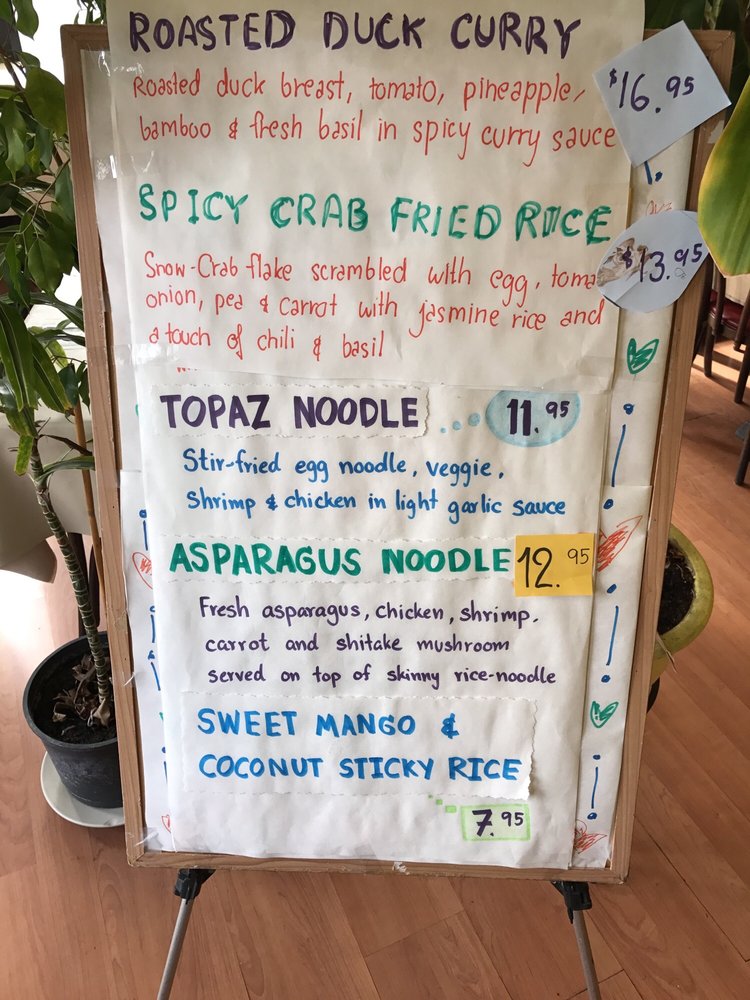 ROASTED DUCK CURRY
$16.95
Roasted duck breast, tomato, pineapple,
bamboo & fresh basil in spicy curry sauce
SPICY CRAB FRIED RICE
$13.95
Snow-Crab flake scrambled with egg, toma
onion, pea & carrot with jasmine rice and
a touch of chili & basil
TOPAZ NOODLE ... 11.95
Stir-fried egg noodle, veggie,
Shrimp & chicken in light garlic sauce
ASPARAGUS NOODLE 12.95
Fresh asparagus, chicken, shrimp,
carrot and shitake mushroom
served on top of skinny rice-noodle
SWEET MANGO &
COCONUT STICKY RICE
7.95